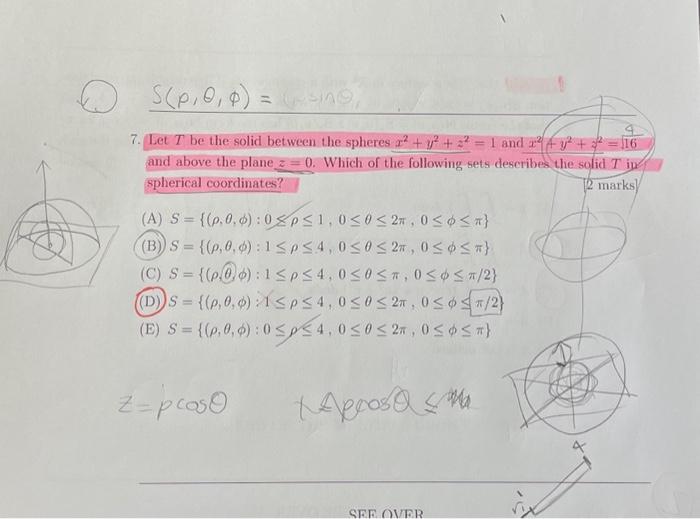 S(ρ, θ, φ) =
7. Let T be the solid between the spheres x² + y² + z² = 1 and x² + y² + z² = 16
4
and above the plane z = 0. Which of the following sets describes the solid T in
spherical coordinates?
[2 marks]
(A) S = {(ρ, θ, φ) : 0 ≤ ρ ≤ 1 , 0 ≤ θ ≤ 2π , 0 ≤ φ ≤ π}
(B) S = {(ρ, θ, φ) : 1 ≤ ρ ≤ 4 , 0 ≤ θ ≤ 2π , 0 ≤ φ ≤ π}
(C) S = {(ρ, θ, φ) : 1 ≤ ρ ≤ 4 , 0 ≤ θ ≤ π , 0 ≤ φ ≤ π/2}
(D) S = {(ρ, θ, φ) : 1 ≤ ρ ≤ 4 , 0 ≤ θ ≤ 2π , 0 ≤ φ ≤ π/2}
(E) S = {(ρ, θ, φ) : 0 ≤ ρ ≤ 4 , 0 ≤ θ ≤ 2π , 0 ≤ φ ≤ π}
z = ρcosθ
ρcosθ ≤
4
SEE OVER